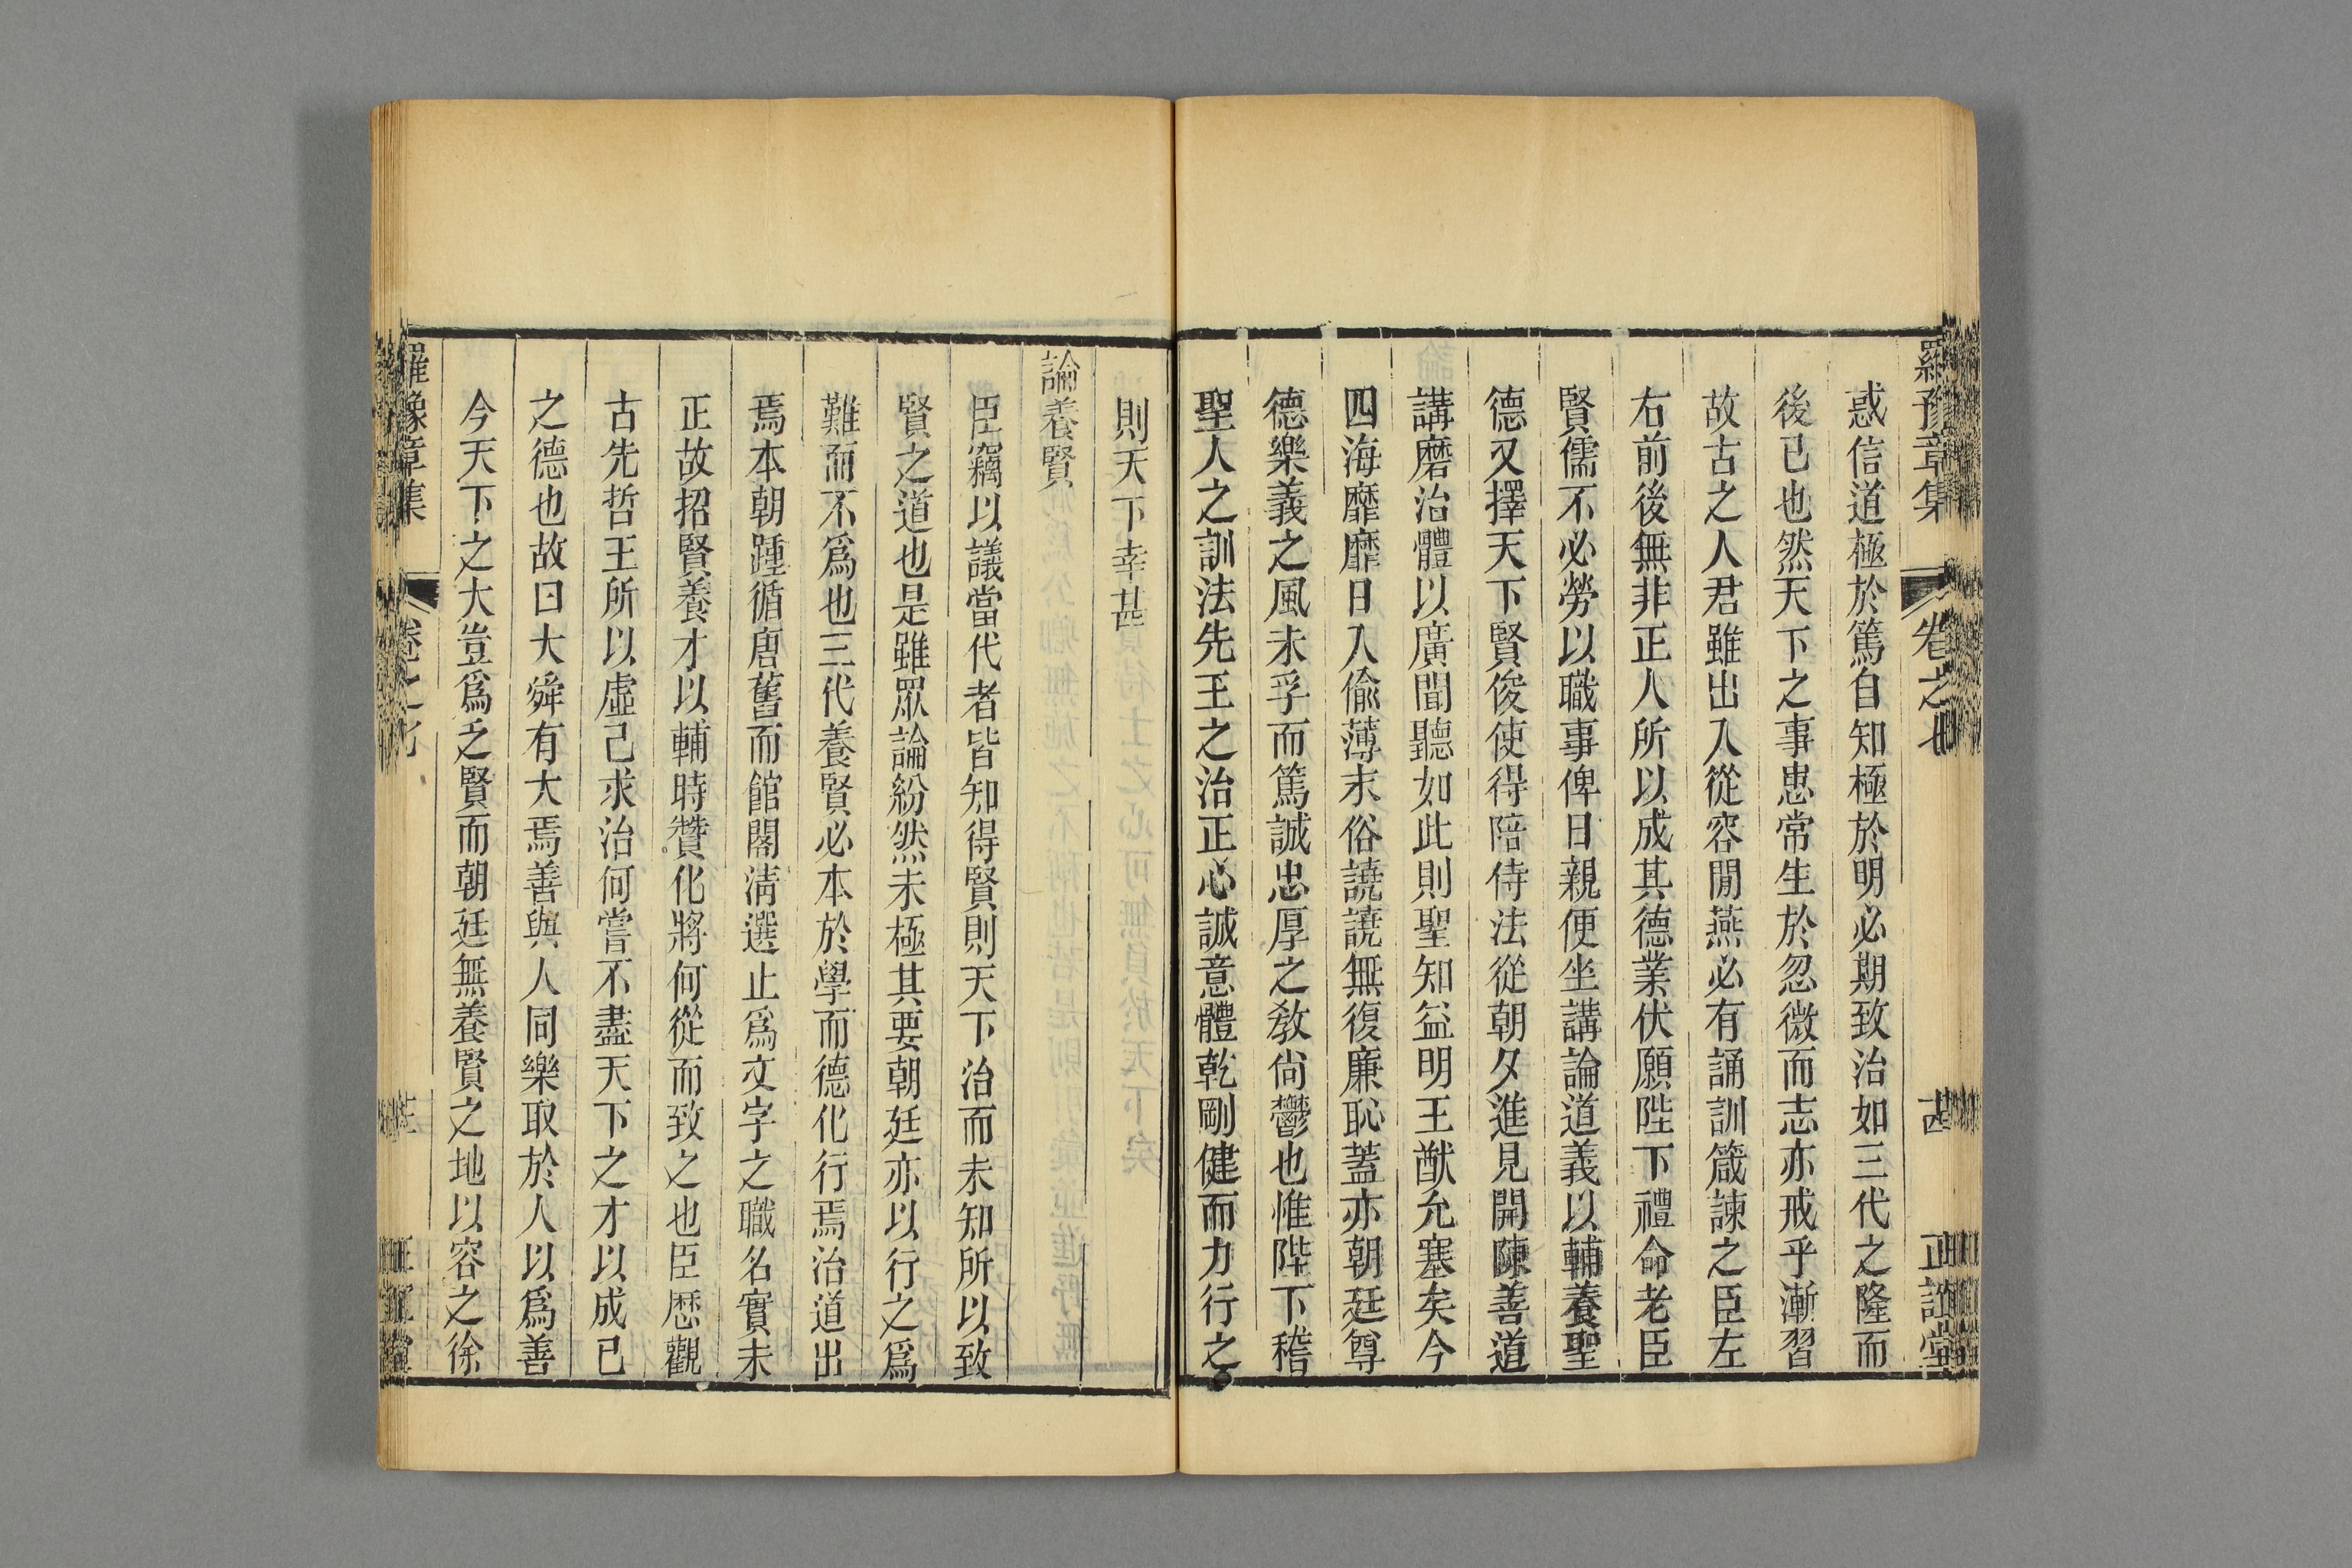 羅豫章集 卷之七 十四 正誼堂
惑信道極於篤自知極於明必期致治如三代之隆而
後已也然天下之事患常生於忽微而志亦戒乎漸習
故古之人君雖出入從容閒燕必有誦訓箴諫之臣左
右前後無非正人所以成其德業伏願陛下禮命老臣
賢儒不必勞以職事俾日親便坐講論道義以輔養聖
德又擇天下賢俊使得陪侍法從朝夕進見開陳善道
講磨治體以廣聞聽如此則聖知益明王猷允塞矣今
四海靡靡日入偷薄末俗譊譊無復廉恥蓋亦朝廷尊
德樂義之風未孚而篤誠忠厚之敎尙鬱也惟陛下稽
聖人之訓法先王之治正心誠意體乾剛健而力行之
則天下幸甚
論養賢
臣竊以議當代者皆知得賢則天下治而未知所以致
賢之道也是雖眾論紛然未極其要朝廷亦以行之爲
難而不爲也三代養賢必本於學而德化行焉治道出
焉本朝踵循唐舊而館閣清選止爲文字之職名實未
正故招賢養才以輔時贊化將何從而致之也臣歷觀
古先哲王所以虛己求治何嘗不盡天下之才以成已
之德也故曰大舜有大焉善與人同樂取於人以爲善
今天下之大豈爲乏賢而朝廷無養賢之地以容之徐
羅豫章集 卷之七